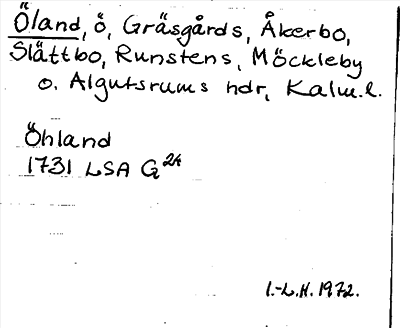 Öland, ö, Gräsgårds, Åkerbo,
Slättbo, Runstens, Möckleby
o. Algutsrums hdr, Kalm.l.
Öhland
1731 LSA G 24
I.-L.H. 1972.